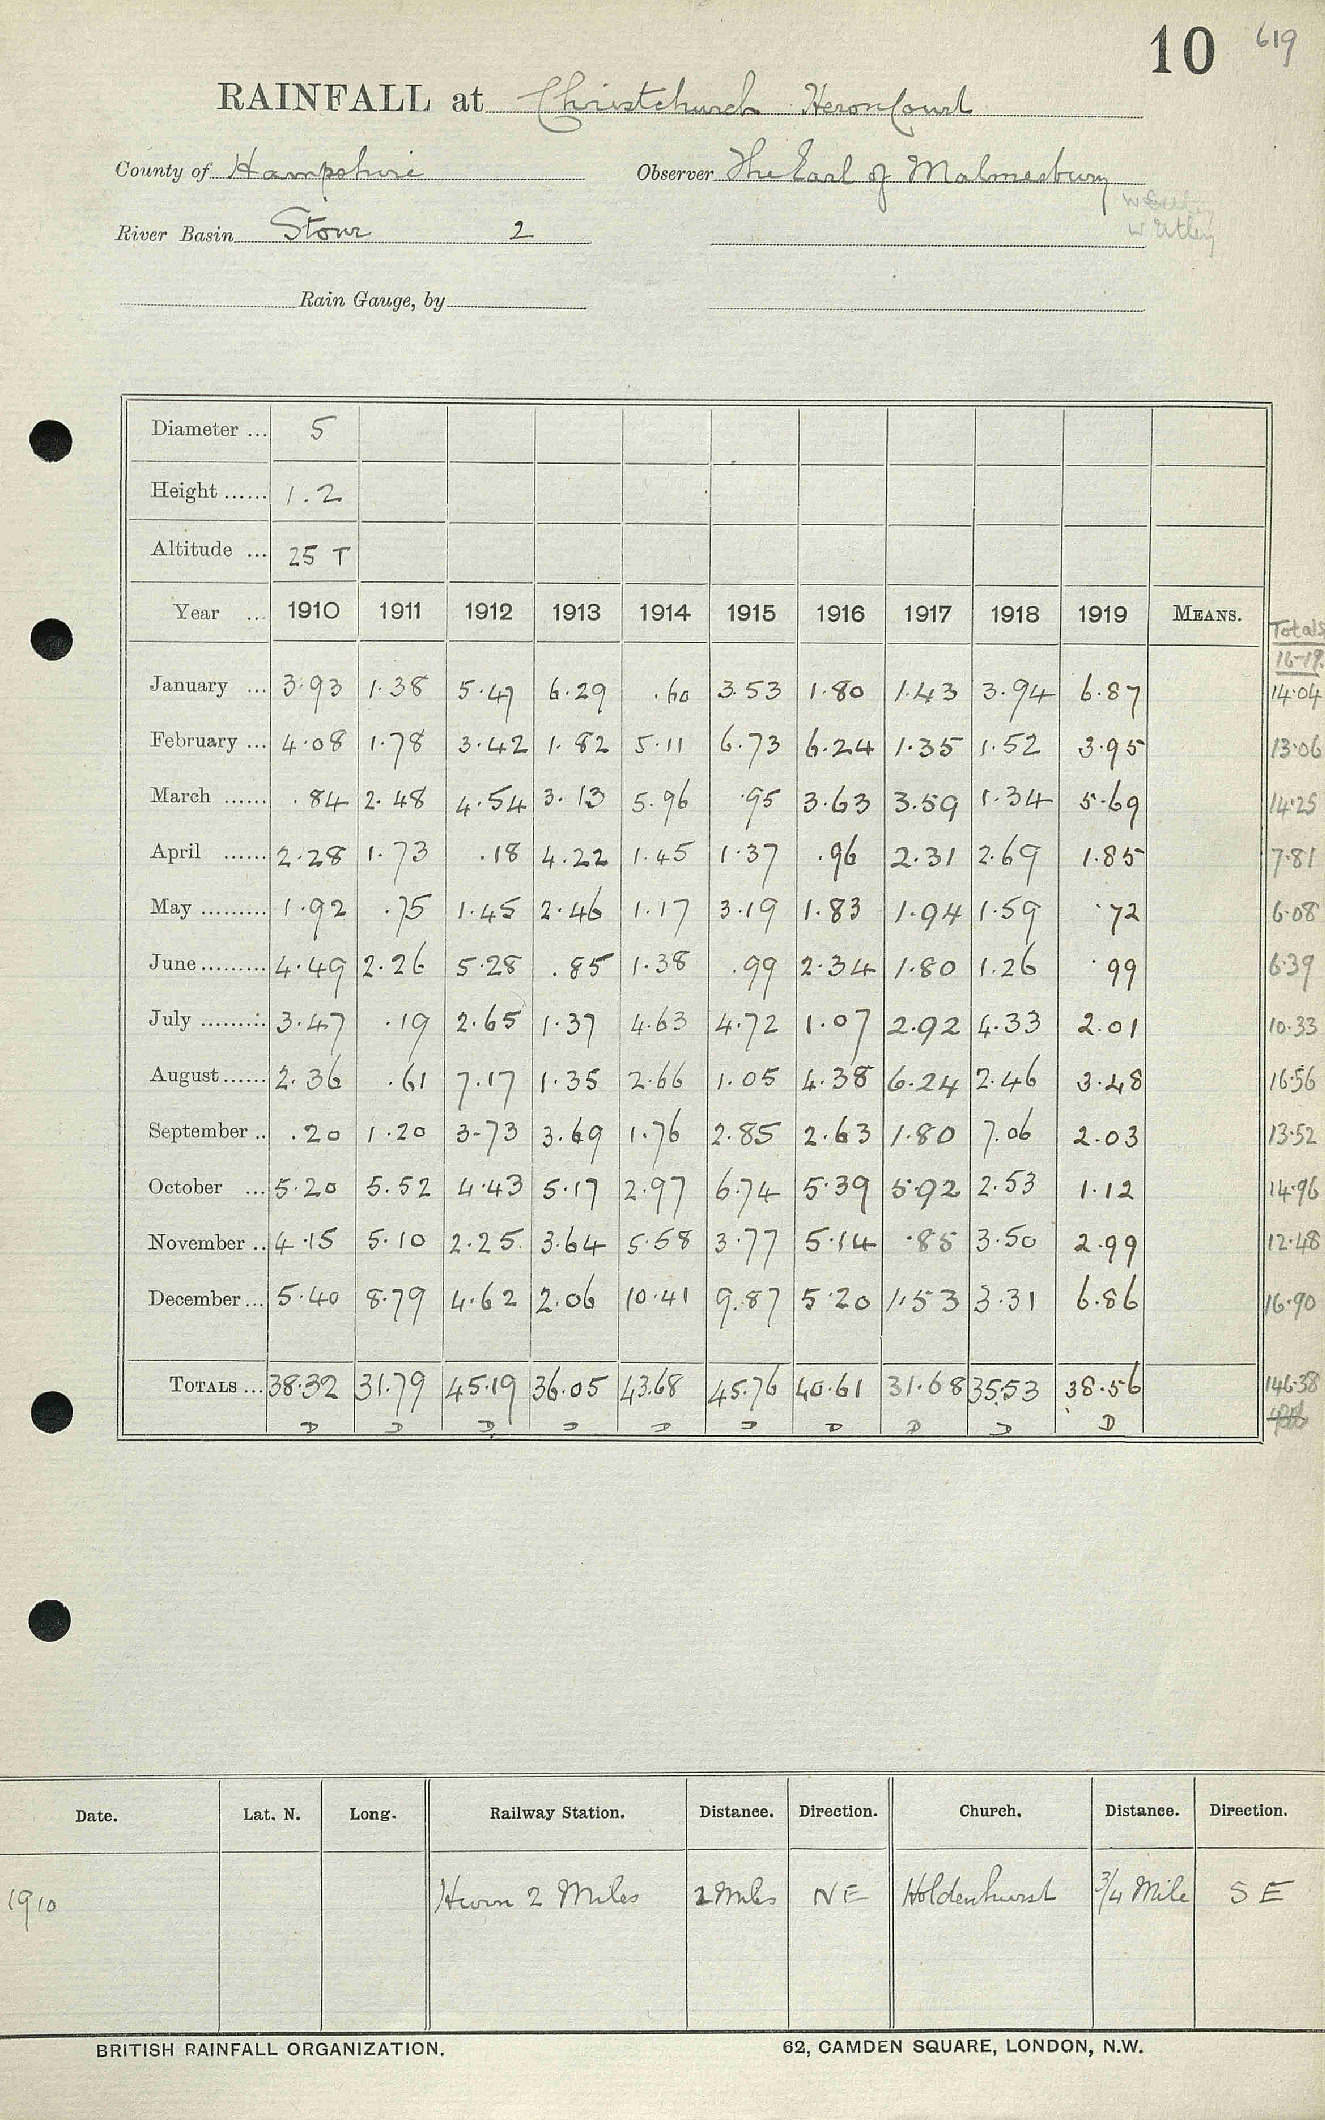 10 619
RAINFALL at Christchurch Heron Court
County of Hampshire Observer The Earl of Malmesbury
River Basin Stour 2 W Utley
Rain Gauge, by
Diameter ... 5
Height ...... 1.2
Altitude ... 25 T
Year ... 1910 1911 1912 1913 1914 1915 1916 1917 1918 1919 MEANS. Totals
16-19.
January ... 3.93 1.38 5.47 6.29 .60 3.53 1.80 1.43 3.94 6.87 14.04
February ... 4.08 1.78 3.42 1.82 5.11 6.73 6.24 1.35 1.52 3.95 13.06
March ...... .84 2.48 4.54 3.13 5.96 .95 3.63 3.59 1.34 5.69 14.25
April ...... 2.28 1.73 .18 4.22 1.45 1.37 .96 2.31 2.69 1.85 7.81
May ......... 1.92 .75 1.45 2.46 1.17 3.19 1.83 1.94 1.59 .72 6.08
June ......... 4.49 2.26 5.28 .85 1.38 .99 2.34 1.80 1.26 .99 6.39
July ......... 3.47 .19 2.65 1.37 4.63 4.72 1.07 2.92 4.33 2.01 10.33
August ...... 2.36 .61 7.17 1.35 2.66 1.05 4.38 6.24 2.46 3.48 16.56
September .. .20 1.20 3.73 3.69 1.76 2.85 2.63 1.80 7.06 2.03 13.52
October ... 5.20 5.52 4.43 5.17 2.97 6.74 5.39 5.92 2.53 1.12 14.96
November .. 4.15 5.10 2.25 3.64 5.58 3.77 5.14 .85 3.50 2.99 12.48
December ... 5.40 8.79 4.62 2.06 10.41 9.87 5.20 1.53 3.31 6.86 16.90
TOTALS ... 38.32 31.79 45.19 36.05 43.68 45.76 40.61 31.68 35.53 38.56 146.38
D D D D D D D D D D
Date. Lat. N. Long. Railway Station. Distance. Direction. Church. Distance. Direction.
1910 Hurn 2 Miles 2 Miles NE Holdenhurst 3/4 Mile S E
BRITISH RAINFALL ORGANIZATION. 62, CAMDEN SQUARE, LONDON, N.W.